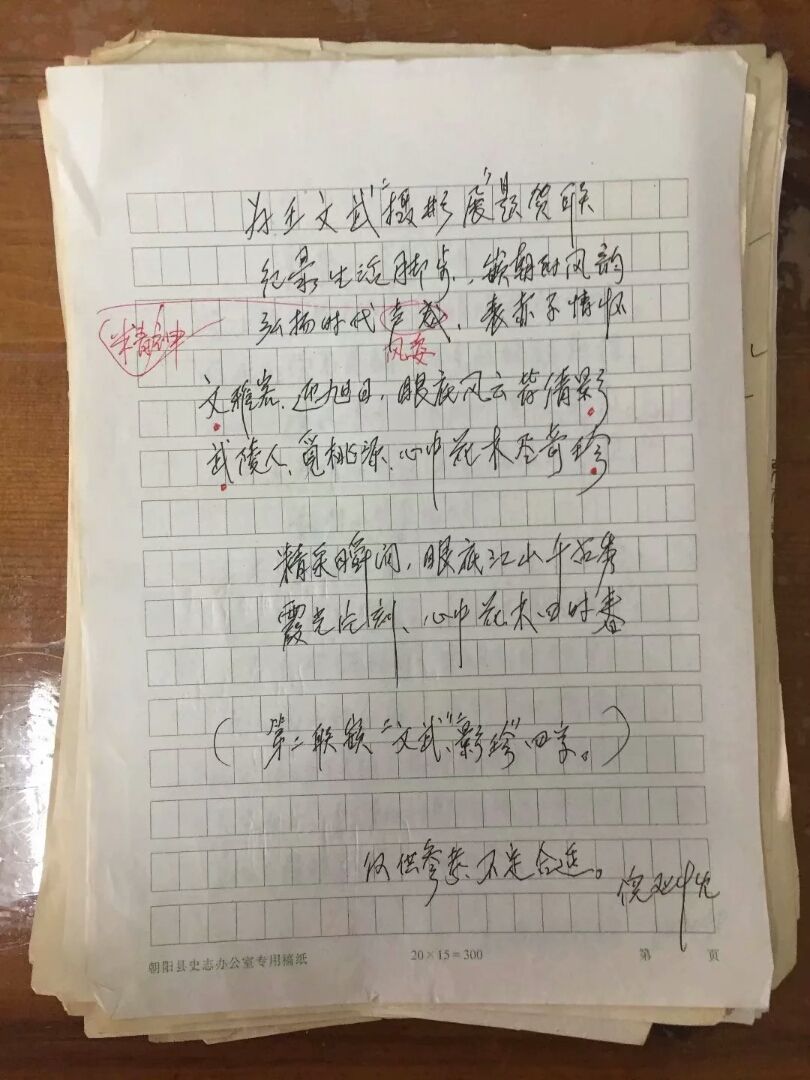 为王文武“摄影展”题贺联
纪录生活脚步,嵌朝时风韵
弘扬时代声威,表赤子情怀
精神
风姿
文雅岩、迎旭日,眼底风云皆倩影
武陵人、觅桃源、心中花木尽奇珍
精采瞬间,眼底江山千件秀
霞光片刻、心中花木四时春
(第二联嵌“文武”、“影珍”四字。)
仅供参考,不定合适。
朝阳县史志办公室专用稿纸
20×15=300
第 页